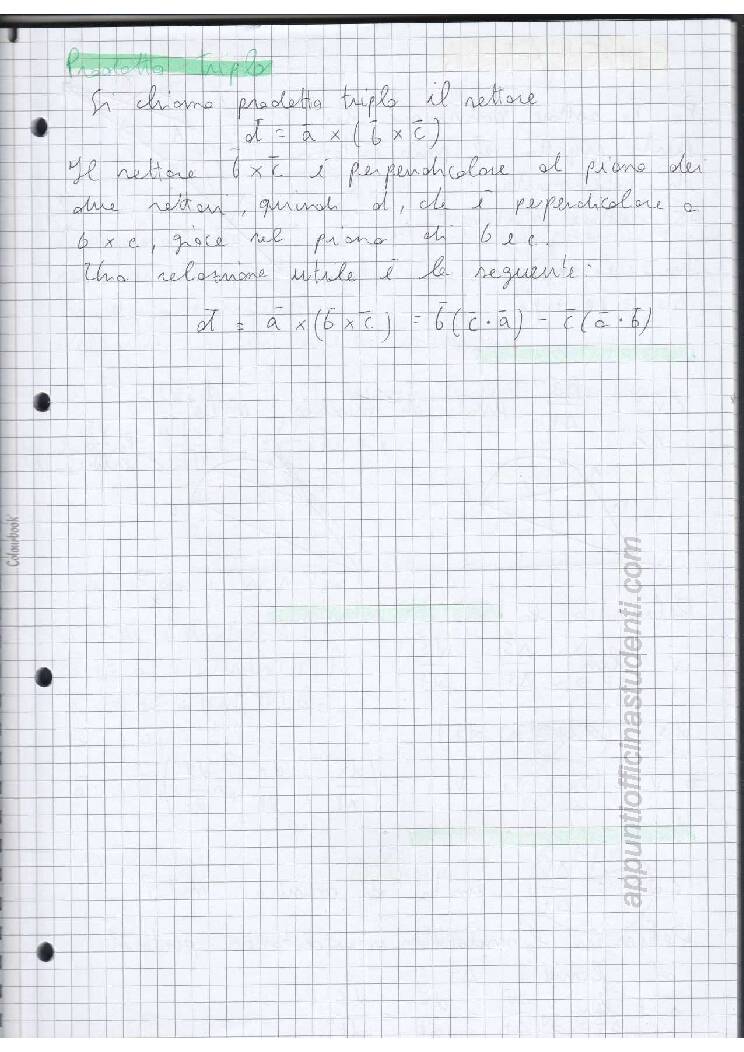 Prodotto triplo
Si chiama prodotto triplo il vettore
d̄ = ā × (b̄ × c̄)
Il vettore b̄ × c̄ è perpendicolare al piano dei
due vettori, quindi d, che è perpendicolare a
b × c, giace nel piano di b e c.
Una relazione utile è la seguente:
d̄ = ā × (b̄ × c̄) = b̄ (c̄ · ā) - c̄ (ā · b̄)
Colourbook
appuntiofficinastudenti.com